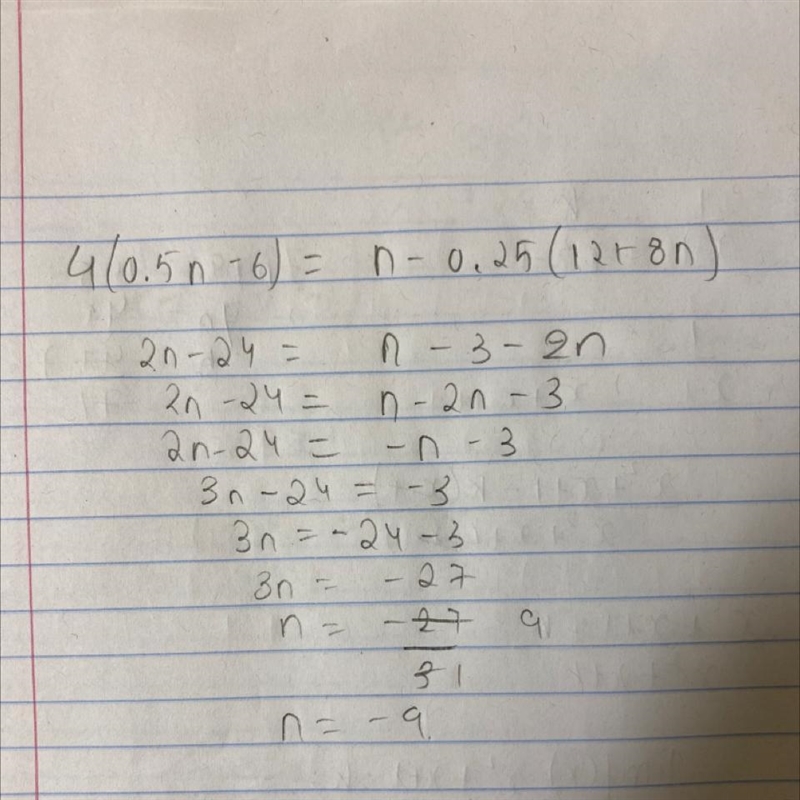 4(0.5n - 6) = n - 0.25(12+8n)
2n - 24 = n - 3 - 2n
2n - 24 = n - 2n - 3
2n - 24 = -n - 3
3n - 24 = -3
3n = -24 - 3
3n = -27
n = -27 9
31
n = -9